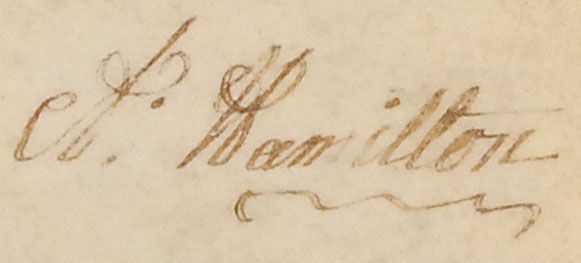 A. Hamilton